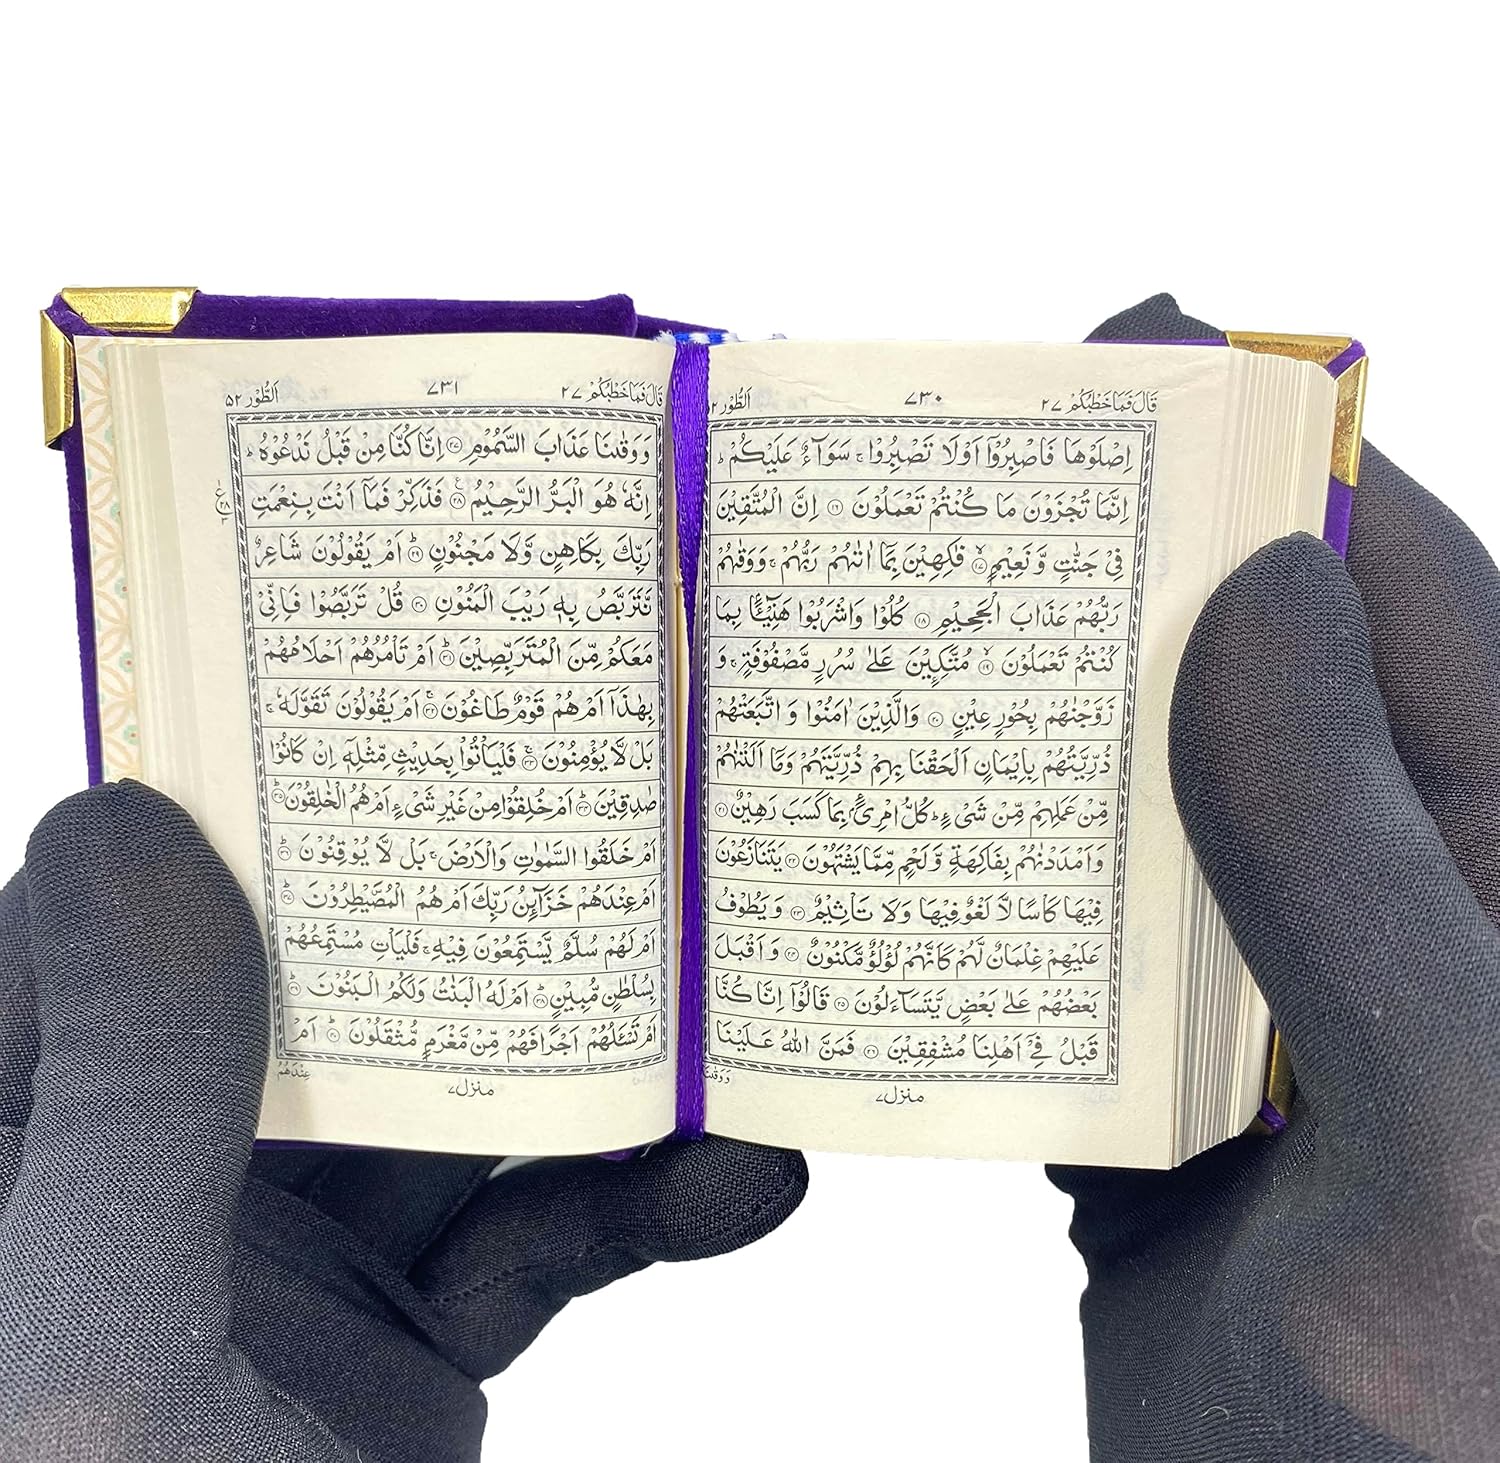 قَالَ فَمَا خَطْبُكُمْ ٢٧
٧٣٠
اَلطُّوْر ٥٢
اِصْلَوْهَا فَاصْبِرُوْۤا اَوْ لَا تَصْبِرُوْا ۚ سَوَآءٌ عَلَيْكُمْ ؕ
اِنَّمَا تُجْزَوْنَ مَا كُنْتُمْ تَعْمَلُوْنَ ﴿١٦﴾ اِنَّ الْمُتَّقِيْنَ
فِيْ جَنّٰتٍ وَّ نَعِيْمٍ ﴿١٧﴾ فٰكِهِيْنَ بِمَاۤ اٰتٰىهُمْ رَبُّهُمْ ۚ وَ وَقٰىهُمْ
رَبُّهُمْ عَذَابَ الْجَحِيْمِ ﴿١٨﴾ كُلُوْا وَاشْرَبُوْا هَنِيْٓـًٔۢا بِمَا
كُنْتُمْ تَعْمَلُوْنَ ﴿١٩﴾ مُتَّكِـِٕيْنَ عَلٰى سُرُرٍ مَّصْفُوْفَةٍ ۚ وَ
زَوَّجْنٰهُمْ بِحُوْرٍ عِيْنٍ ﴿٢٠﴾ وَالَّذِيْنَ اٰمَنُوْا وَ اتَّبَعَتْهُمْ
ذُرِّيَّتُهُمْ بِاِيْمَانٍ اَلْحَقْنَا بِهِمْ ذُرِّيَّتَهُمْ وَمَاۤ اَلَتْنٰهُمْ
مِّنْ عَمَلِهِمْ مِّنْ شَيْءٍ ؕ كُلُّ امْرِئٍۢ بِمَا كَسَبَ رَهِيْنٌ ﴿٢١﴾
وَ اَمْدَدْنٰهُمْ بِفَاكِهَةٍ وَّ لَحْمٍ مِّمَّا يَشْتَهُوْنَ ﴿٢٢﴾ يَتَنَازَعُوْنَ
فِيْهَا كَاْسًا لَّا لَغْوٌ فِيْهَا وَلَا تَاْثِيْمٌ ﴿٢٣﴾ وَ يَطُوْفُ
عَلَيْهِمْ غِلْمَانٌ لَّهُمْ كَاَنَّهُمْ لُؤْلُؤٌ مَّكْنُوْنٌ ﴿٢٤﴾ وَ اَقْبَلَ
بَعْضُهُمْ عَلٰى بَعْضٍ يَّتَسَآءَلُوْنَ ﴿٢٥﴾ قَالُوْۤا اِنَّا كُنَّا
قَبْلُ فِيْۤ اَهْلِنَا مُشْفِقِيْنَ ﴿٢٦﴾ فَمَنَّ اللّٰهُ عَلَيْنَا
وَ وَقٰىنَا
منزل ٧
قَالَ فَمَا خَطْبُكُمْ ٢٧
٧٣١
اَلطُّوْر ٥٢
وَ وَقٰىنَا عَذَابَ السَّمُوْمِ ﴿٢٧﴾ اِنَّا كُنَّا مِنْ قَبْلُ نَدْعُوْهُ ؕ
اِنَّهٗ هُوَ الْبَرُّ الرَّحِيْمُ ﴿٢٨﴾ فَذَكِّرْ فَمَاۤ اَنْتَ بِنِعْمَتِ
رَبِّكَ بِكَاهِنٍ وَّلَا مَجْنُوْنٍ ﴿٢٩﴾ اَمْ يَقُوْلُوْنَ شَاعِرٌ
نَّتَرَبَّصُ بِهٖ رَيْبَ الْمَنُوْنِ ﴿٣٠﴾ قُلْ تَرَبَّصُوْا فَاِنِّيْ
مَعَكُمْ مِّنَ الْمُتَرَبِّصِيْنَ ﴿٣١﴾ اَمْ تَاْمُرُهُمْ اَحْلَامُهُمْ
بِهٰذَاۤ اَمْ هُمْ قَوْمٌ طَاغُوْنَ ﴿٣٢﴾ اَمْ يَقُوْلُوْنَ تَقَوَّلَهٗ ۚ
بَلْ لَّا يُؤْمِنُوْنَ ﴿٣٣﴾ فَلْيَاْتُوْا بِحَدِيْثٍ مِّثْلِهٖۤ اِنْ كَانُوْا
صٰدِقِيْنَ ﴿٣٤﴾ اَمْ خُلِقُوْا مِنْ غَيْرِ شَيْءٍ اَمْ هُمُ الْخٰلِقُوْنَ ﴿٣٥﴾
اَمْ خَلَقُوا السَّمٰوٰتِ وَالْاَرْضَ ۚ بَلْ لَّا يُوْقِنُوْنَ ﴿٣٦﴾
اَمْ عِنْدَهُمْ خَزَآئِنُ رَبِّكَ اَمْ هُمُ الْمُصَۜيْطِرُوْنَ ﴿٣٧﴾
اَمْ لَهُمْ سُلَّمٌ يَّسْتَمِعُوْنَ فِيْهِ ۚ فَلْيَاْتِ مُسْتَمِعُهُمْ
بِسُلْطٰنٍ مُّبِيْنٍ ﴿٣٨﴾ اَمْ لَهُ الْبَنٰتُ وَلَكُمُ الْبَنُوْنَ ﴿٣٩﴾
اَمْ تَسْـَٔلُهُمْ اَجْرًا فَهُمْ مِّنْ مَّغْرَمٍ مُّثْقَلُوْنَ ﴿٤٠﴾ اَمْ
عِنْدَهُمُ
منزل ٧